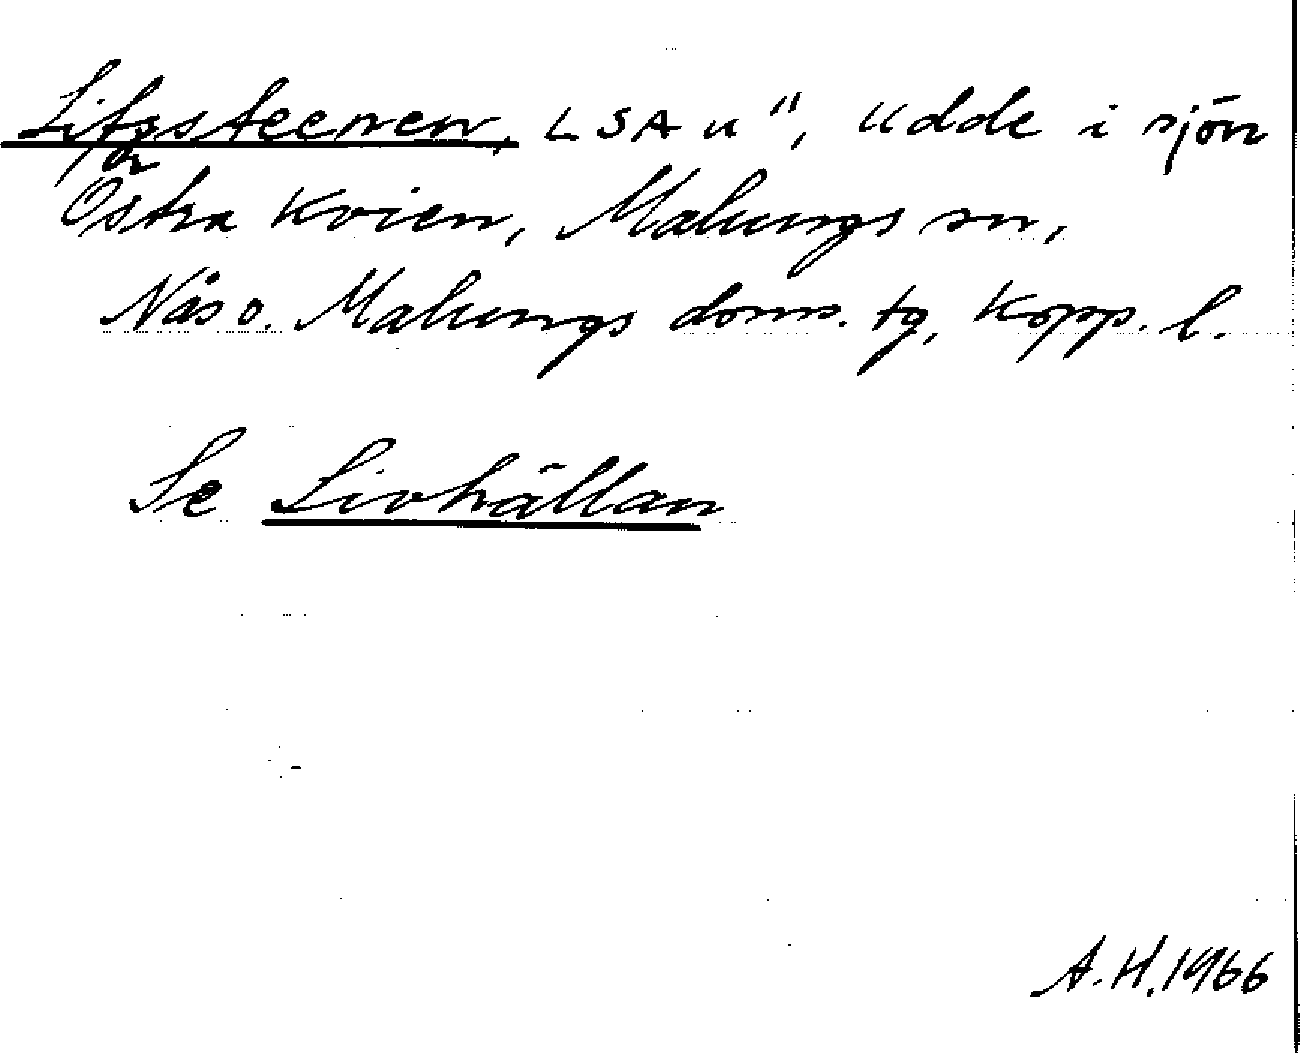 Lifzsteenen, LSA u", udde i sjön
Östra Kvien, Malungs sn,
Nås o. Malungs doms. tg, Kopp. l.
Se Livhällan
A.H. 1966